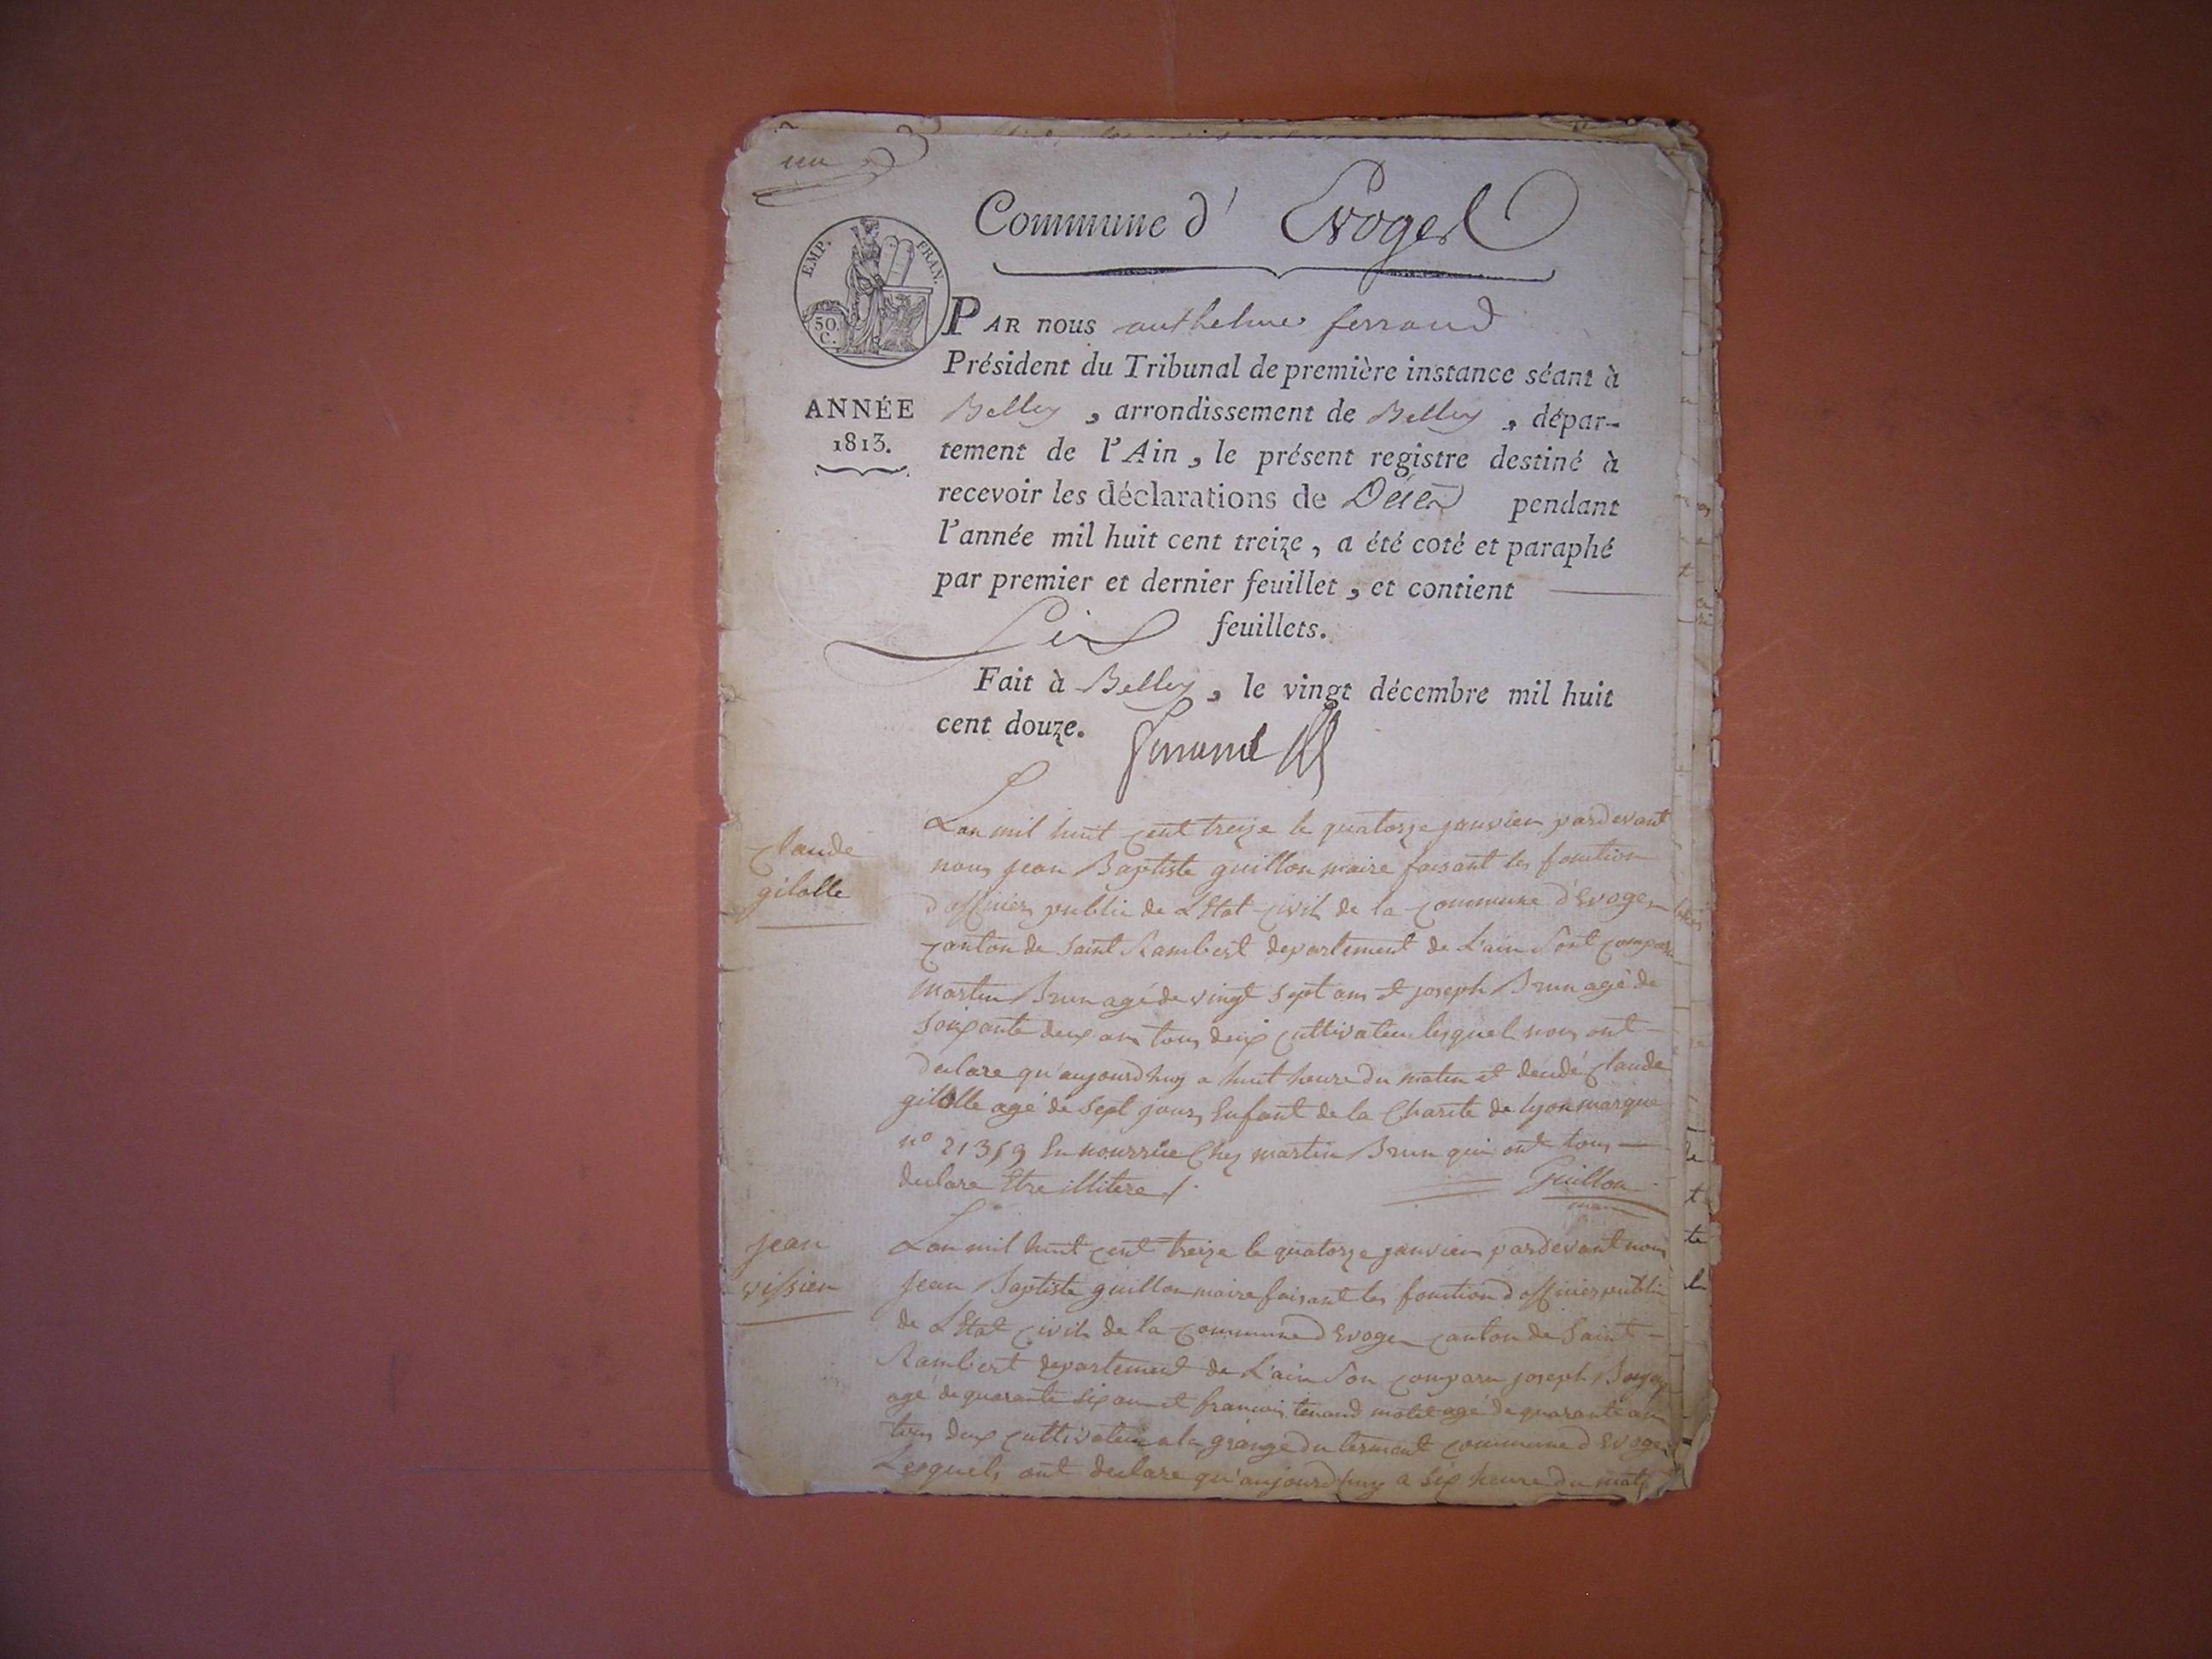 un
Commune d' Evoges
EMP. FRAN.
50 C.
PAR nous anthelme ferrand
Président du Tribunal de première instance séant à
ANNÉE
1813.
Belley, arrondissement de Belley, dépar-
tement de l'Ain, le présent registre destiné à
recevoir les déclarations de Décès pendant
l'année mil huit cent treize, a été coté et paraphé
par premier et dernier feuillet, et contient
Six feuillets.
Fait à Belley, le vingt décembre mil huit
cent douze.
Claude
gilolle
L'an mil huit cent treize le quatorze janvier pardevant
nous jean Baptiste guillon maire faisant les fonction
d'officier public de L'Etat Civil de la Commune d'Evoges
Canton de Saint Rambert departement de L'ain Sont Comparu
Martin Brun agé de vingt Sept ans et joseph Brun agé de
Soixante deux ans tous deux Cultivateur lesquel nous ont
declare qu'aujourdhuy a huit heure du matin et decédé Claude
gilolle agé de Sept jours Enfant de la Charite de lyon marque
n° 21359 En nourrice Chez martin Brun qui ont tous
declare Etre illitere /.
Guillon
maire
jean
vissien
L'an mil huit cent treize le quatorze janvier pardevant nous
jean Baptiste guillon maire faisant les fonction d'officier public
de L'Etat Civil de la Commune d'Evoges Canton de Saint
Rambert departement de L'ain Son Comparu joseph
agé de quarante Six ans et francois tenand agé de quarante ans
tous deux Cultivateur a la grange du Commune d'Evoges
Lesquels ont declare qu'aujourdhuy a Six heure du matin